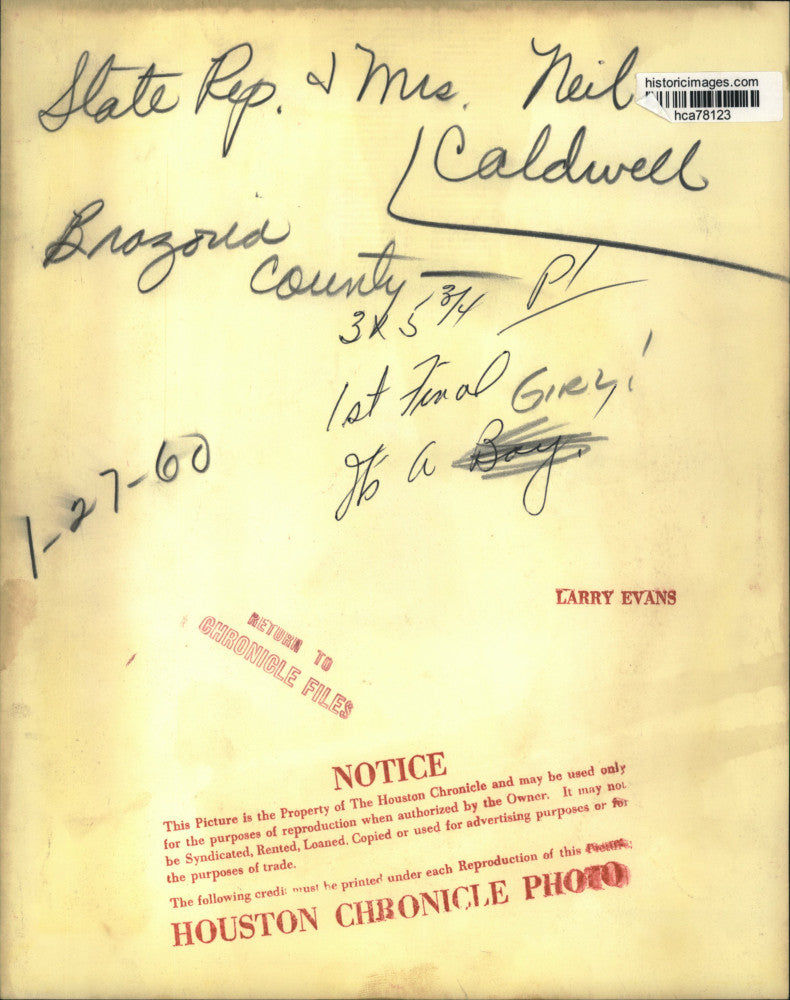 State Rep. & Mrs. Neil
Caldwell
historicimages.com
hca78123
Brazoria
County —
3x5 3/4 P1
1st Final GIRL!
It's a Boy.
1-27-60
LARRY EVANS
RETURN TO
CHRONICLE FILES
NOTICE
This Picture is the Property of The Houston Chronicle and may be used only
for the purposes of reproduction when authorized by the Owner. It may not
be Syndicated, Rented, Loaned. Copied or used for advertising purposes or for
the purposes of trade.
The following credit must be printed under each Reproduction of this Picture:
HOUSTON CHRONICLE PHOTO